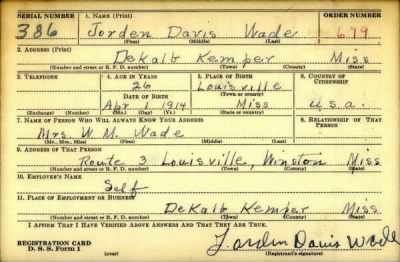 SERIAL NUMBER 1. NAME (Print) ORDER NUMBER
386 Jorden Davis Wade 679
(First) (Middle) (Last)
2. ADDRESS (Print)
Dekalb Kemper Miss
(Number and street or R. F. D. number) (Town) (County) (State)
3. TELEPHONE 4. AGE IN YEARS 5. PLACE OF BIRTH 6. COUNTRY OF CITIZENSHIP
26 Louisville
DATE OF BIRTH (Town or county)
Apr 1 1914 Miss U.S.a.
(Exchange) (Number) (Mo.) (Day) (Yr.) (State or country)
7. NAME OF PERSON WHO WILL ALWAYS KNOW YOUR ADDRESS 8. RELATIONSHIP OF THAT PERSON
Mrs. W. M. Wade
(Mr., Mrs., Miss) (First) (Middle) (Last)
9. ADDRESS OF THAT PERSON
Route 3 Louisville, Winston Miss
(Number and street or R. F. D. number) (Town) (County) (State)
10. EMPLOYER'S NAME
Self
11. PLACE OF EMPLOYMENT OR BUSINESS
DeKalb Kemper Miss
(Number and street or R. F. D. number) (Town) (County) (State)
I AFFIRM THAT I HAVE VERIFIED ABOVE ANSWERS AND THAT THEY ARE TRUE.
REGISTRATION CARD
D. S. S. Form 1 (over) Jorden Davis Wade
(Registrant's signature)